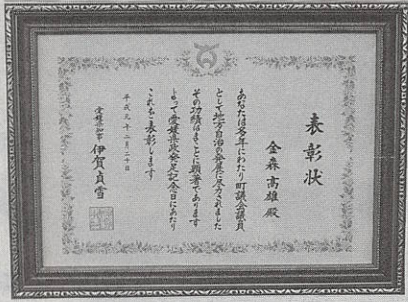 表彰状
金森高雄殿
あなたは多年にわたり町議会議員
として地方自治の発展に尽力されました
その功績はまことに顕著であります
よって愛媛県政発足記念日にあたり
これを表彰します
平成元年二月二十日
愛媛県知事 伊賀貞雪